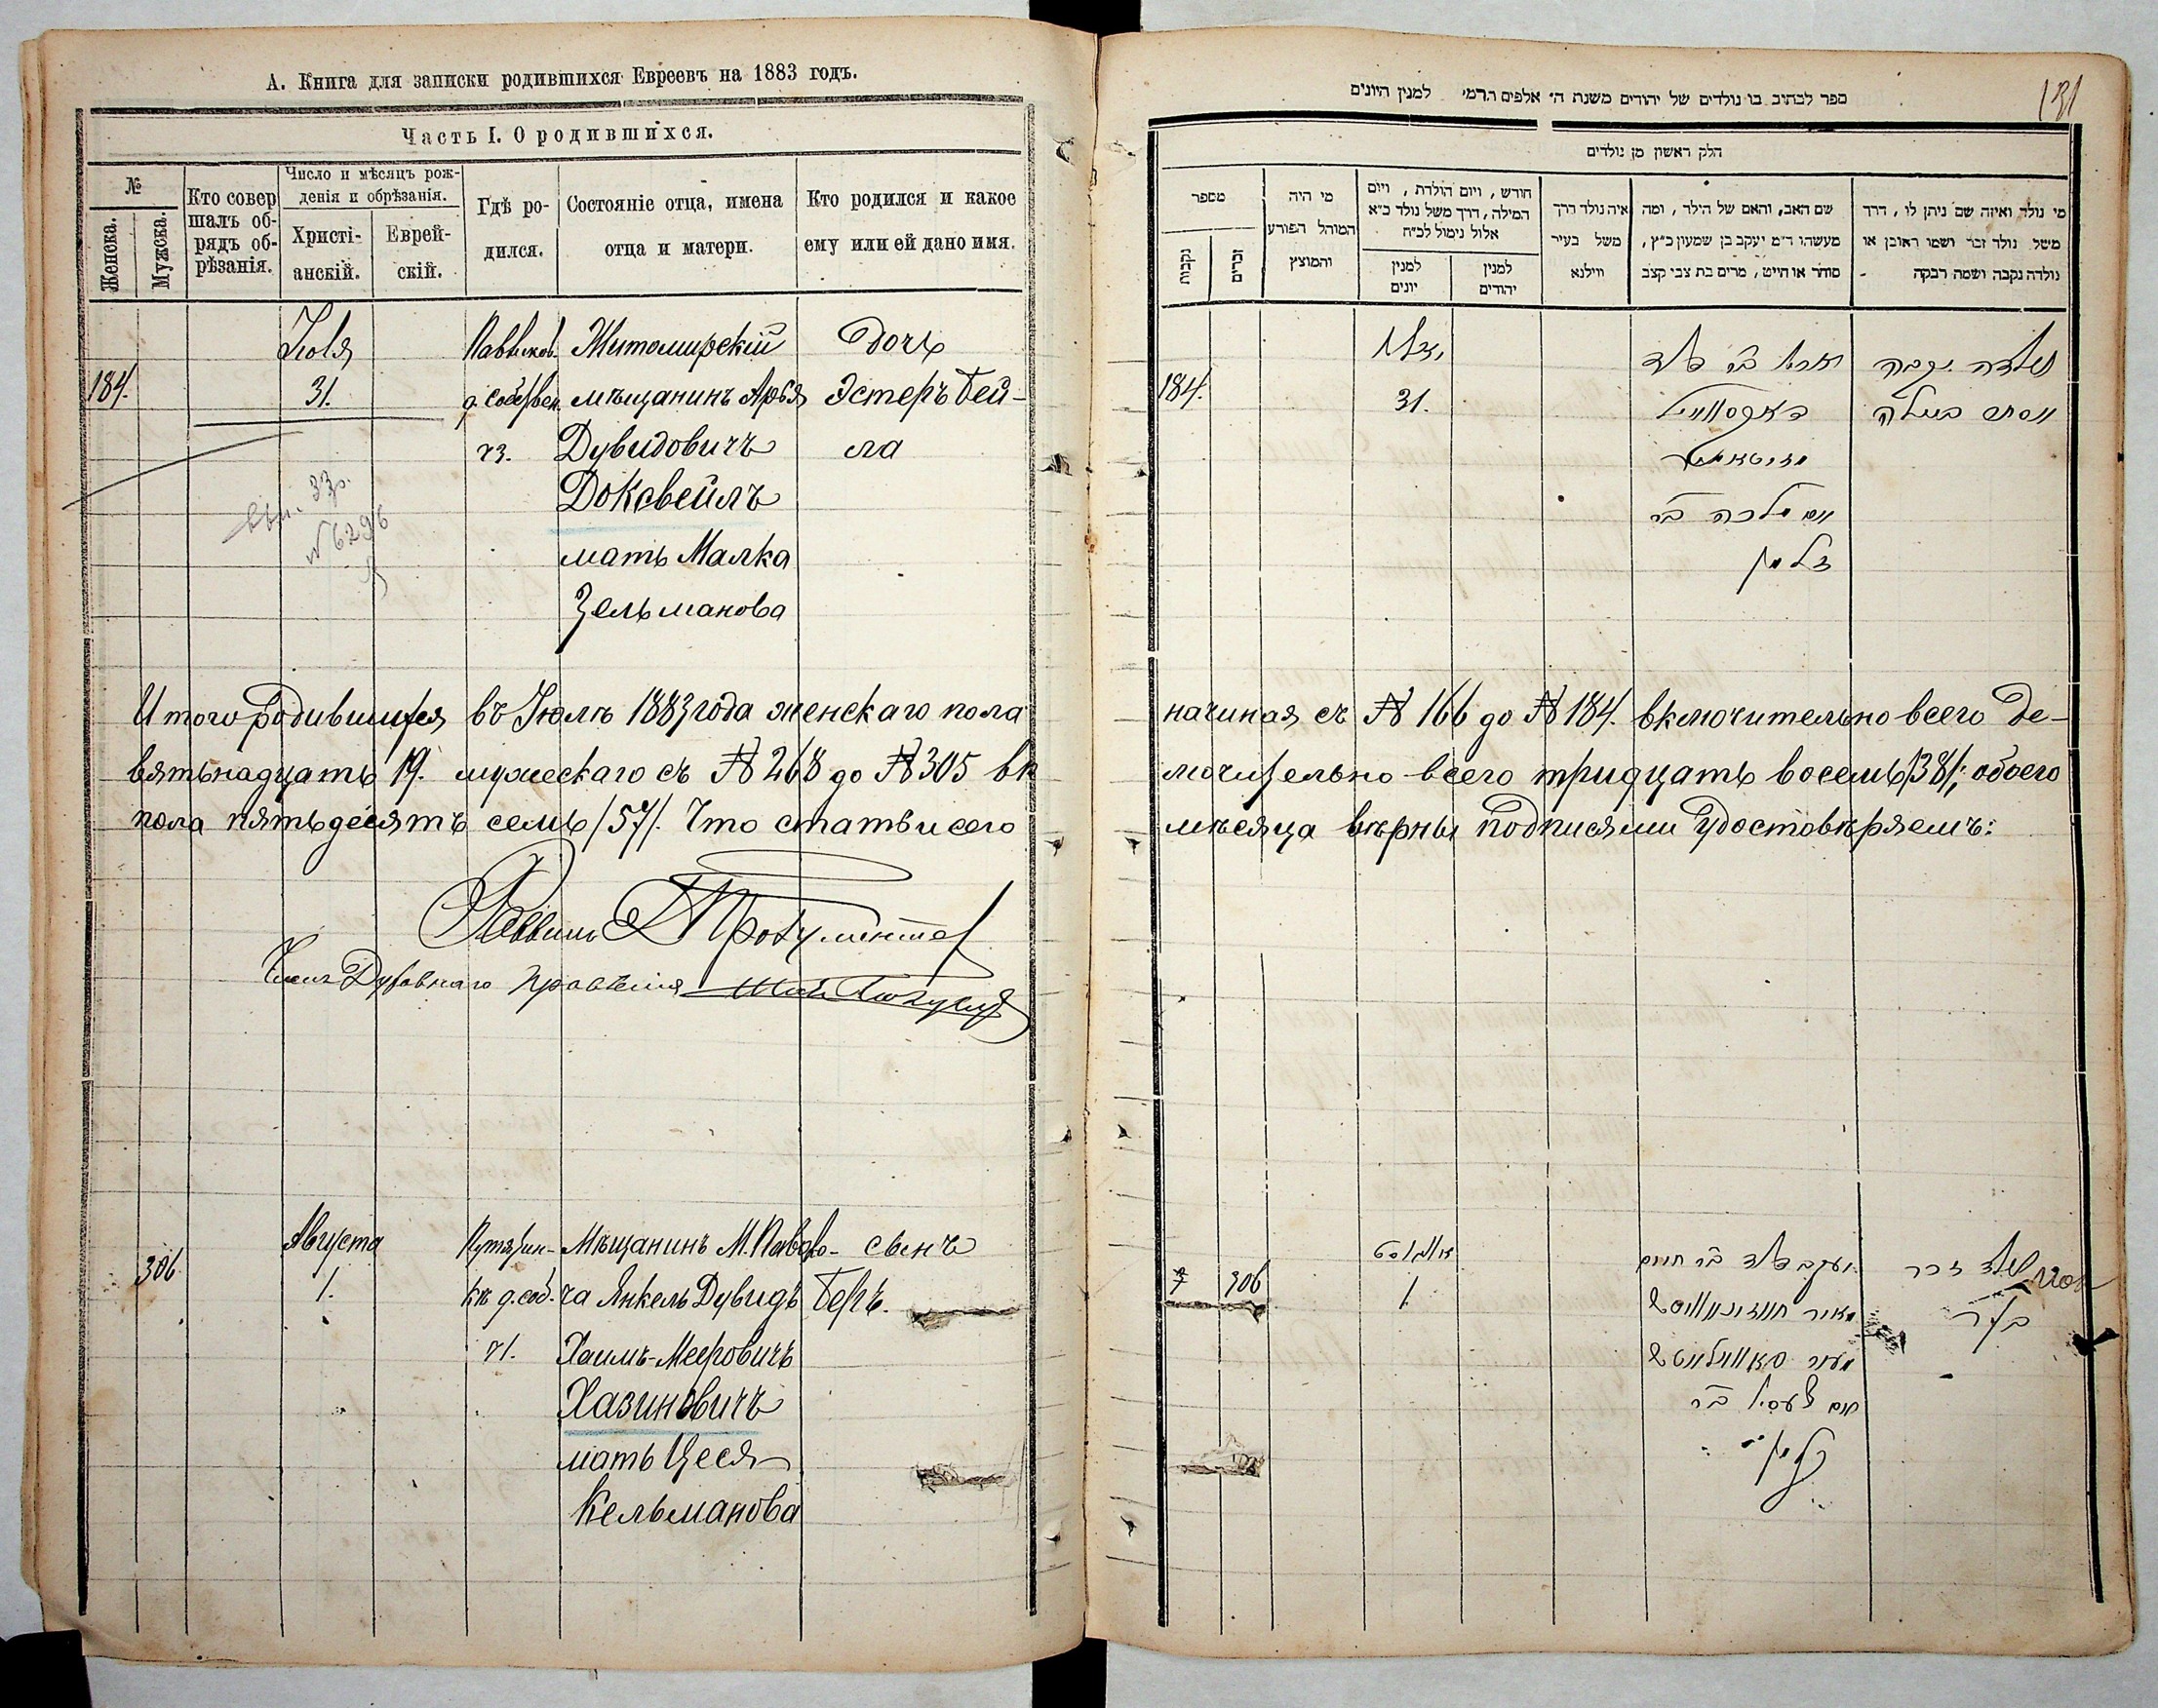 А. Книга для записки родившихся Евреевъ на 1883 годъ.
Часть I. О родившихся.
№
Женска.
Мужска.
Кто совер
шалъ об-
рядъ об-
рѣзанія.
Число и мѣсяцъ рож-
денія и обрѣзанія.
Христі-
анскій.
Еврей-
скій.
Гдѣ ро-
дился.
Состояніе отца, имена
отца и матери.
Кто родился и какое
ему или ей дано имя.
184.
Іюля
31.
ч3.
Житомирскій
мѣщанинъ Арья
Дувидовичъ
Доксвейлъ
мать Малка
Зельманова
дочь
Эстеръ Бей-
ла
33р.
№ 6296
Итого родившихся въ Іюлѣ 1883 года женскаго пола
вятьнадцать 19. мужескаго съ № 268 до № 305 вк
пола пятьдесятъ семь /57/. Что статьи сего
Раввинъ
Членъ Духовнаго Правленія
306
Августа
1.
ч1.
Мѣщанинъ М. Паволо-
ча Янкель Дувидъ
Хаимъ-Мееровичъ
Хазиновичъ
мать Цеся
Кельманова
сынъ
Беръ.
181
ספר לכתוב בו נולדים של יהודים משנת ה' אלפים תרמ' למנין היונים
חלק ראשון מן נולדים
מספר
נקבות
זכרים
מי היה
המוהל הפורע
והמוצץ
חודש, ויום הולדת, ויום
המילה, דרך משל נולד כ"א
אלול נימול לכ"ח
למנין
יונים
למנין
יהודים
איה נולד דרך
משל בעיר
ווילנא
שם האב, והאם של הילד, ומה
מעשהו ד"מ יעקב בן שמעון כ"ץ,
סוחר או חייט, מרים בת צבי קצב
מי נולד ואיזה שם ניתן לו, דרך
משל נולד זכר ושמו ראובן או
נולדה נקבה ושמה רבקה
184.
31.
נולדה נקבה
начиная съ № 166 до № 184. включительно всего де-
лючительно всего тридцать восемь /38/; обоего
мѣсяца вѣрны подписями удостовѣряемъ:
306
אווגוסט
1.
נולד זכר